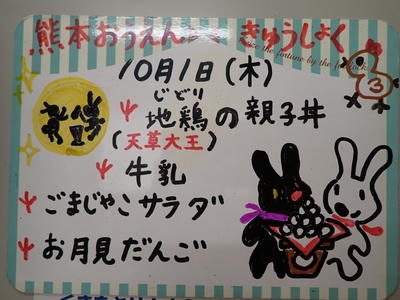 熊本おうえん きゅうしょく
10月1日(木)
じどり
地鶏の親子丼
(天草大王)
牛乳
ごまじゃこサラダ
お月見だんご
3